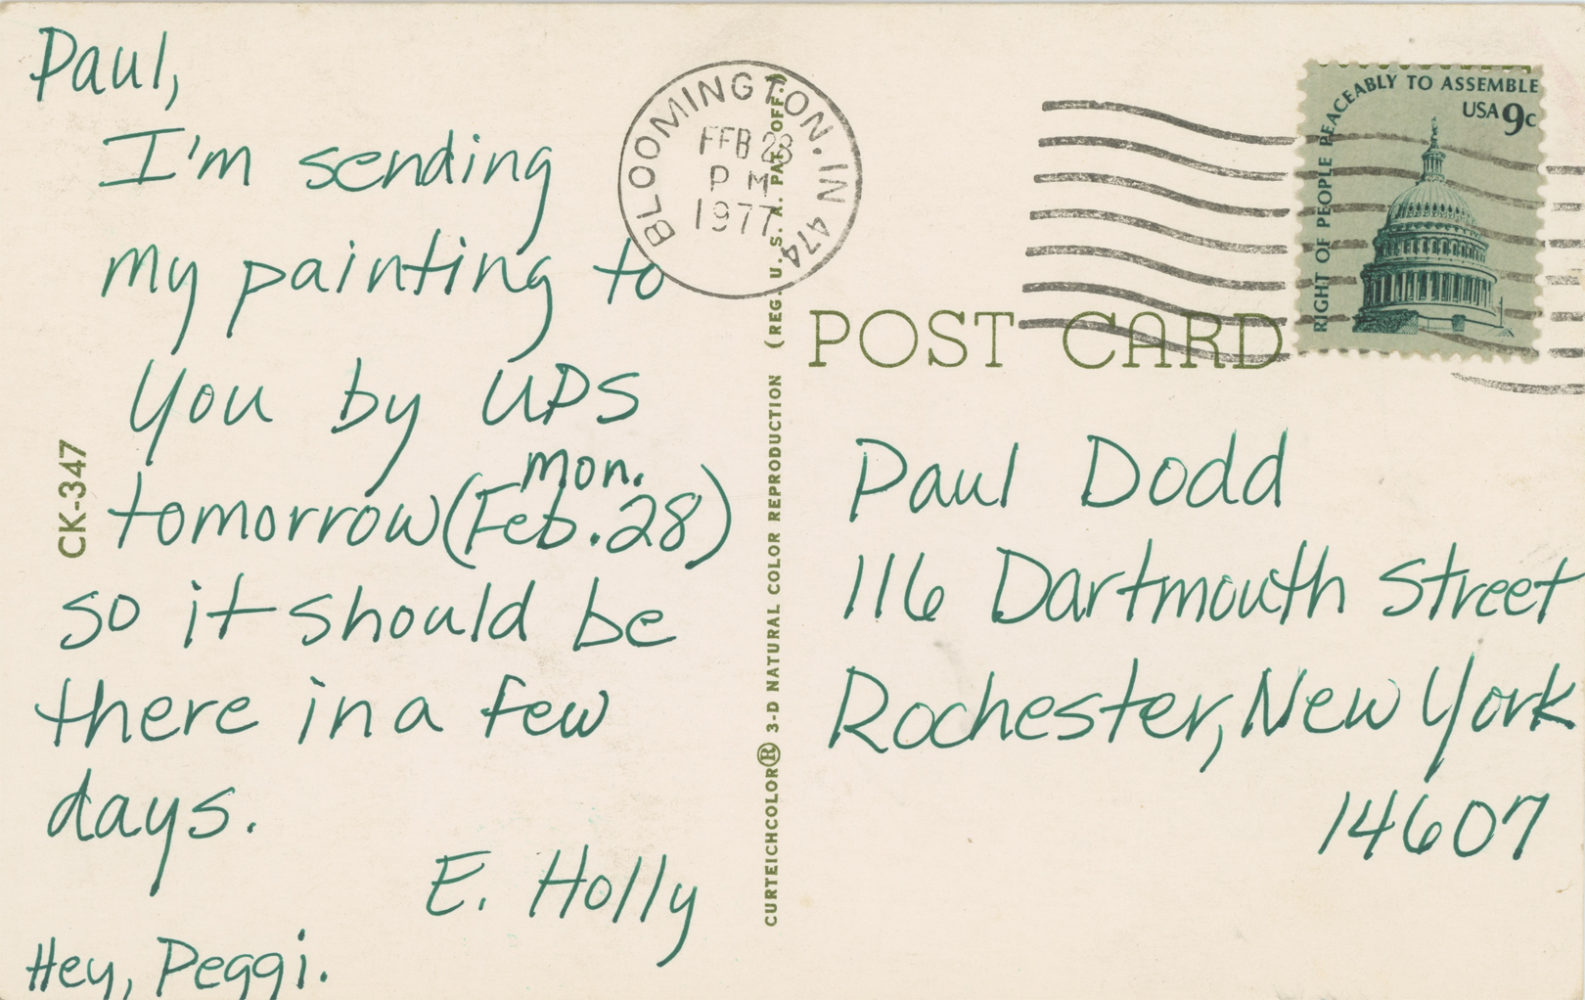 Paul,
I'm sending
my painting to
you by UPS
mon.
tomorrow (Feb. 28)
so it should be
there in a few
days.
E. Holly
Hey, Peggi.
CK-347
CURTEICHCOLOR® 3-D NATURAL COLOR REPRODUCTION (REG. U. S. A. PAT. OFF.)
BLOOMINGTON, IN 474
FEB 28
PM
1977
RIGHT OF PEOPLE PEACEABLY TO ASSEMBLE
USA 9c
POST CARD
Paul Dodd
116 Dartmouth Street
Rochester, New York
14607